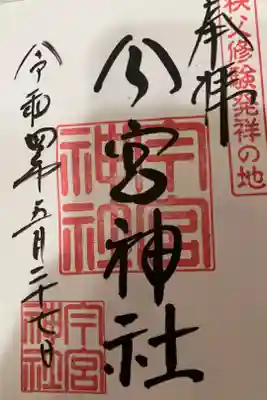 秩父修験発祥の地
奉拝
今宮神社
令和四年五月二十七日
今宮
神社
今宮
神社